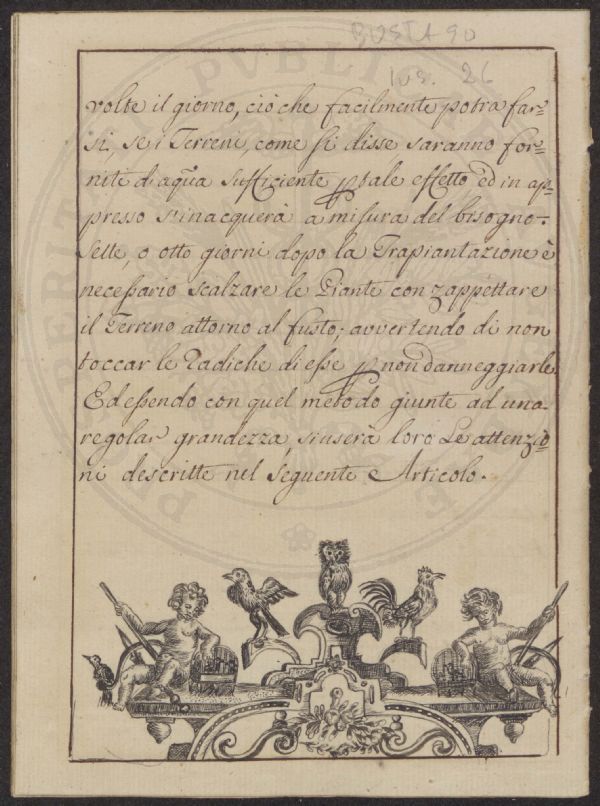 BUSTA 90
ins. 26
volte il giorno, ciò che facilmente potra far=
si, se i Terreni, come si disse saranno for=
niti di aqua sufficiente p tale effetto, ed in ap=
presso s'inacquerà a misura del bisogno.
Sette, o otto giorni dopo la Trapiantazione è
necessario scalzare le Piante con zappettare
il Terreno attorno al fusto; avvertendo di non
toccar le Radiche di esse p non danneggiarle
Ed essendo con quel metodo giunte ad una
regolar grandezza, si userà loro Le attenzio=
ni descritte nel Seguente Articolo.